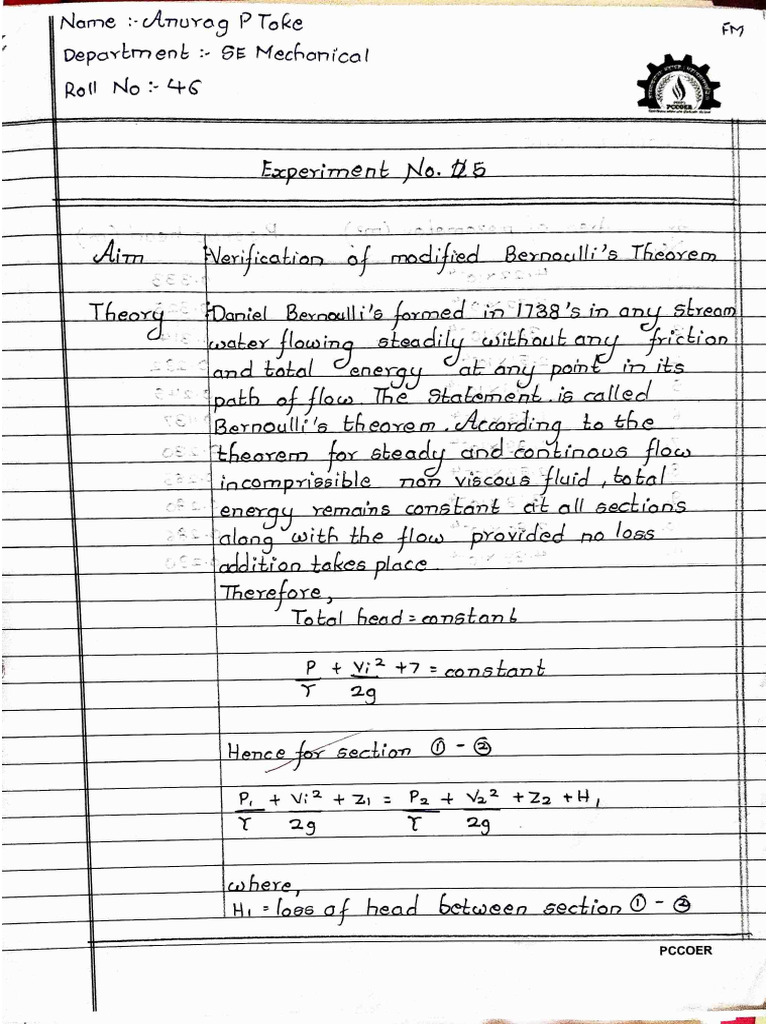 Name :- Anurag P Toke
FM
Department :- SE Mechanical
Roll No :- 46
PCCOER
Experiment No. 5
Aim :- Verification of modified Bernoulli's Theorem
Theory :- Daniel Bernoulli's formed in 1738's in any stream
water flowing steadily without any friction
and total energy at any point in its
path of flow. The Statement is called
Bernoulli's theorem. According to the
theorem for steady and continous flow
incomprissible non viscous fluid, total
energy remains constant at all sections
along with the flow provided no loss
addition takes place.
Therefore,
Total head = constant
P/γ + Vi²/2g + 7 = constant
Hence for section ① - ②
P₁/γ + Vi²/2g + Z₁ = P₂/γ + V₂²/2g + Z₂ + H₁
where,
H₁ = loss of head between section ① - ②
PCCOER